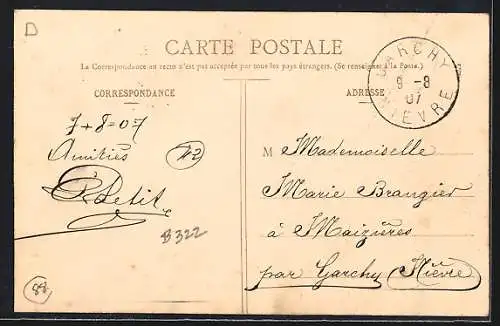 D
CARTE POSTALE
La Correspondance au recto n'est pas acceptée par tous les pays étrangers. (Se renseigner à la Poste.)
CORRESPONDANCE
ADRESSE
GARCHY
9 -8
07
NIÈVRE
7+8=07
Amitiés
Petit
42
B322
88
M Mademoiselle
Marie Brangier
à Maizières
par Garchy (Nièvre)